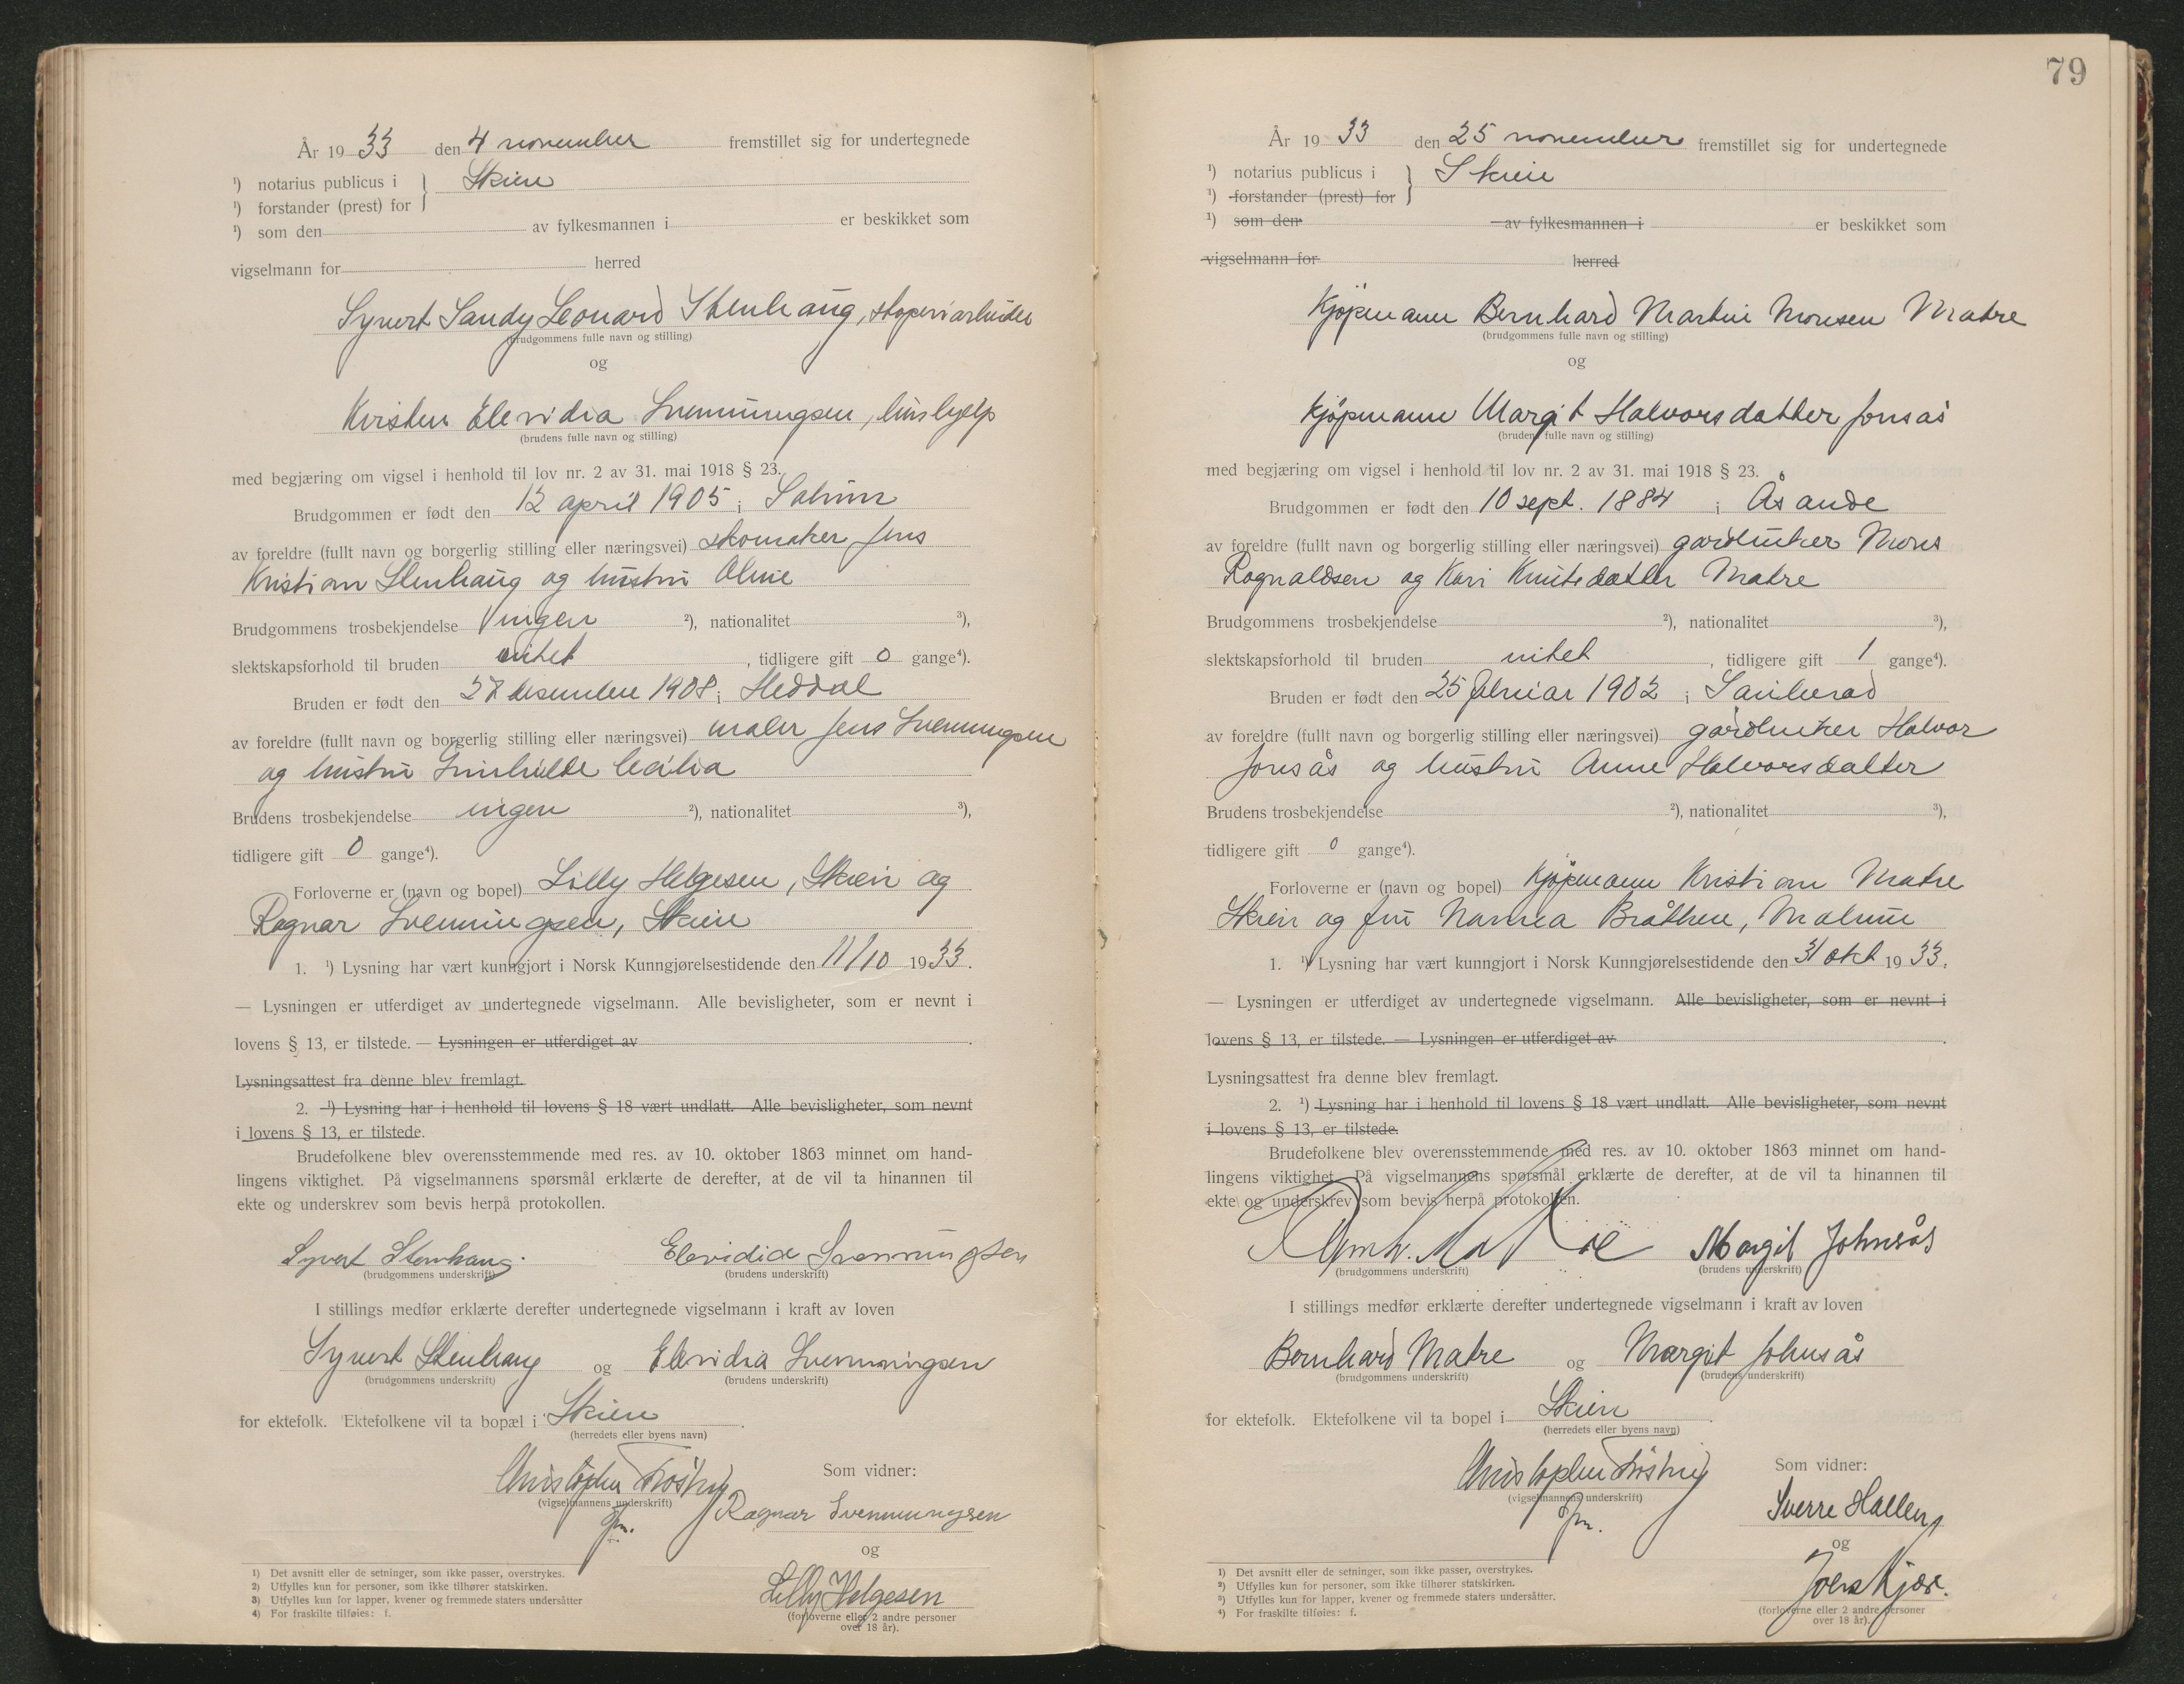 År 19 33 den 4 november fremstillet sig for undertegnede
¹) notarius publicus i } Skien
¹) forstander (prest) for
¹) som den av fylkesmannen i er beskikket som
vigselmann for herred
Syvert Sandy Leonard Stenhaug, støperiarbeider
(brudgommens fulle navn og stilling)
og
Kirsten Elevidia Svenningsen, hushjelp
(brudens fulle navn og stilling)
med begjæring om vigsel i henhold til lov nr. 2 av 31. mai 1918 § 23.
Brudgommen er født den 12 april 1905 i Solum
av foreldre (fullt navn og borgerlig stilling eller næringsvei) skomaker Jens
Kristian Stenhaug og hustru Oline
Brudgommens trosbekjendelse Ingen ²), nationalitet ³),
slektskapsforhold til bruden intet, tidligere gift 0 gange⁴).
Bruden er født den 27 desember 1908 i Heddal
av foreldre (fullt navn og borgerlig stilling eller næringsvei) maler Jens Svenningsen
og hustru Cecilia
Brudens trosbekjendelse ingen ²), nationalitet ³),
tidligere gift 0 gange⁴).
Forloverne er (navn og bopel) Lilly Helgesen, Skien og
Ragnar Svenningsen, Skien
1. ¹) Lysning har vært kunngjort i Norsk Kunngjørelsestidende den 11/10 1933.
— Lysningen er utferdiget av undertegnede vigselmann. Alle bevisligheter, som er nevnt i
lovens § 13, er tilstede. — Lysningen er utferdiget av .
Lysningsattest fra denne blev fremlagt.
2. ¹) Lysning har i henhold til lovens § 18 vært undlatt. Alle bevisligheter, som nevnt
i lovens § 13, er tilstede.
Brudefolkene blev overensstemmende med res. av 10. oktober 1863 minnet om hand-
lingens viktighet. På vigselmannens spørsmål erklærte de derefter, at de vil ta hinannen til
ekte og underskrev som bevis herpå protokollen.
Syvert Stenhaug. Elevidia Svenningsen
(brudgommens underskrift) (brudens underskrift)
I stillings medfør erklærte derefter undertegnede vigselmann i kraft av loven
Syvert Stenhaug og Elevidia Svenningsen
(brudgommens underskrift) (brudens underskrift)
for ektefolk. Ektefolkene vil ta bopæl i Skien .
(herredets eller byens navn)
Christopher Som vidner:
(vigselmannens underskrift)
Ragnar Svenningsen
og
Lilly Helgesen
(forloverne eller 2 andre personer
over 18 år).
1) Det avsnitt eller de setninger, som ikke passer, overstrykes.
2) Utfylles kun for personer, som ikke tilhører statskirken.
3) Utfylles kun for lapper, kvener og fremmede staters undersåtter
4) For fraskilte tilføies: f.
79
År 19 33 den 25 november fremstillet sig for undertegnede
¹) notarius publicus i } Skien
¹) forstander (prest) for
¹) som den av fylkesmannen i er beskikket som
vigselmann for herred
Kjøpmann Bernhard Martin Monsen Matre
(brudgommens fulle navn og stilling)
og
Kjøpmann Margit Halvorsdatter Jonsås
(brudens fulle navn og stilling)
med begjæring om vigsel i henhold til lov nr. 2 av 31. mai 1918 § 23.
Brudgommen er født den 10 sept. 1884 i Åsande
av foreldre (fullt navn og borgerlig stilling eller næringsvei) gårdbruker Mons
Rognaldsen og Kari Knutsdatter Matre
Brudgommens trosbekjendelse ²), nationalitet ³),
slektskapsforhold til bruden intet, tidligere gift 1 gange⁴).
Bruden er født den 25 februar 1902 i Sauherad
av foreldre (fullt navn og borgerlig stilling eller næringsvei) gårdbruker Halvor
Jonsås og hustru Anne Halvorsdatter
Brudens trosbekjendelse ²), nationalitet ³),
tidligere gift 0 gange⁴).
Forloverne er (navn og bopel) Kjøpmann Kristian Matre
Skien og fru Bråthen,
1. ¹) Lysning har vært kunngjort i Norsk Kunngjørelsestidende den 31 okt 1933.
— Lysningen er utferdiget av undertegnede vigselmann. Alle bevisligheter, som er nevnt i
lovens § 13, er tilstede. — Lysningen er utferdiget av .
Lysningsattest fra denne blev fremlagt.
2. ¹) Lysning har i henhold til lovens § 18 vært undlatt. Alle bevisligheter, som nevnt
i lovens § 13, er tilstede.
Brudefolkene blev overensstemmende med res. av 10. oktober 1863 minnet om hand-
lingens viktighet. På vigselmannens spørsmål erklærte de derefter, at de vil ta hinannen til
ekte og underskrev som bevis herpå protokollen.
Bernh. Matre Margit Johnsås
(brudgommens underskrift) (brudens underskrift)
I stillings medfør erklærte derefter undertegnede vigselmann i kraft av loven
Bernhard Matre og Margit Johnsås
(brudgommens underskrift) (brudens underskrift)
for ektefolk. Ektefolkene vil ta bopel i Skien .
(herredets eller byens navn)
Christopher Som vidner:
(vigselmannens underskrift)
Sverre Hallen
og
(forloverne eller 2 andre personer
over 18 år).
1) Det avsnitt eller de setninger, som ikke passer, overstrykes.
2) Utfylles kun for personer, som ikke tilhører statskirken.
3) Utfylles kun for lapper, kvener og fremmede staters undersåtter.
4) For fraskilte tilføies: f.